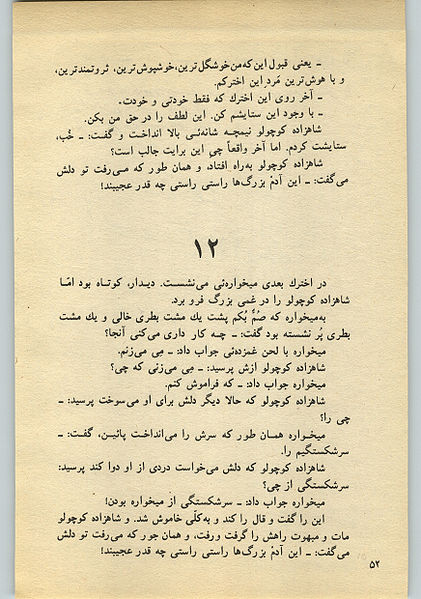 ـ یعنی قبول این‌که من خوشگل‌ترین، خوشپوش‌ترین، ثروتمندترین،
و با هوش‌ترین مرد این اخترکم.
ـ آخر روی این اخترك که فقط خودتی و خودت.
ـ با وجود این ستایشم کن. این لطف را در حق من بکن.
شاهزاده کوچولو نیمچه شانه‌ئی بالا انداخت و گفت: ـ خُب،
ستایشت کردم. اما آخر واقعاً چی این برایت جالب است؟
شاهزاده کوچولو به‌راه افتاد، و همان طور که می‌رفت تو دلش
می‌گفت: ـ این آدم بزرگ‌ها راستی راستی چه قدر عجیبند!
۱۲
در اخترك بعدی میخواره‌ئی می‌نشست. دیدار، کوتاه بود امّا
شاهزاده کوچولو را در غمی بزرگ فرو برد.
به‌میخواره که صُمٌّ بُکم پشت یك مشت بطری خالی و یك مشت
بطری پُر نشسته بود گفت: ـ چه کار داری می‌کنی آنجا؟
میخواره با لحن غمزده‌ئی جواب داد: ـ مِی می‌زنم.
شاهزاده کوچولو ازش پرسید: ـ مِی می‌زنی که چی؟
میخواره جواب داد: ـ که فراموش کنم.
شاهزاده کوچولو که حالا دیگر دلش برای او می‌سوخت پرسید: ـ
چی را؟
میخواره همان طور که سرش را می‌انداخت پائین، گفت: ـ
سرشکستگیم را.
شاهزاده کوچولو که دلش می‌خواست دردی از او دوا کند پرسید:
سرشکستگی از چی؟
میخواره جواب داد: ـ سرشکستگی از میخواره بودن!
این را گفت و قال را کند و به‌کلّی خاموش شد. و شاهزاده کوچولو
مات و مبهوت راهش را گرفت ورفت، و همان جور که می‌رفت تو دلش
می‌گفت: ـ این آدم بزرگ‌ها راستی راستی چه قدر عجیبند!
۵۲